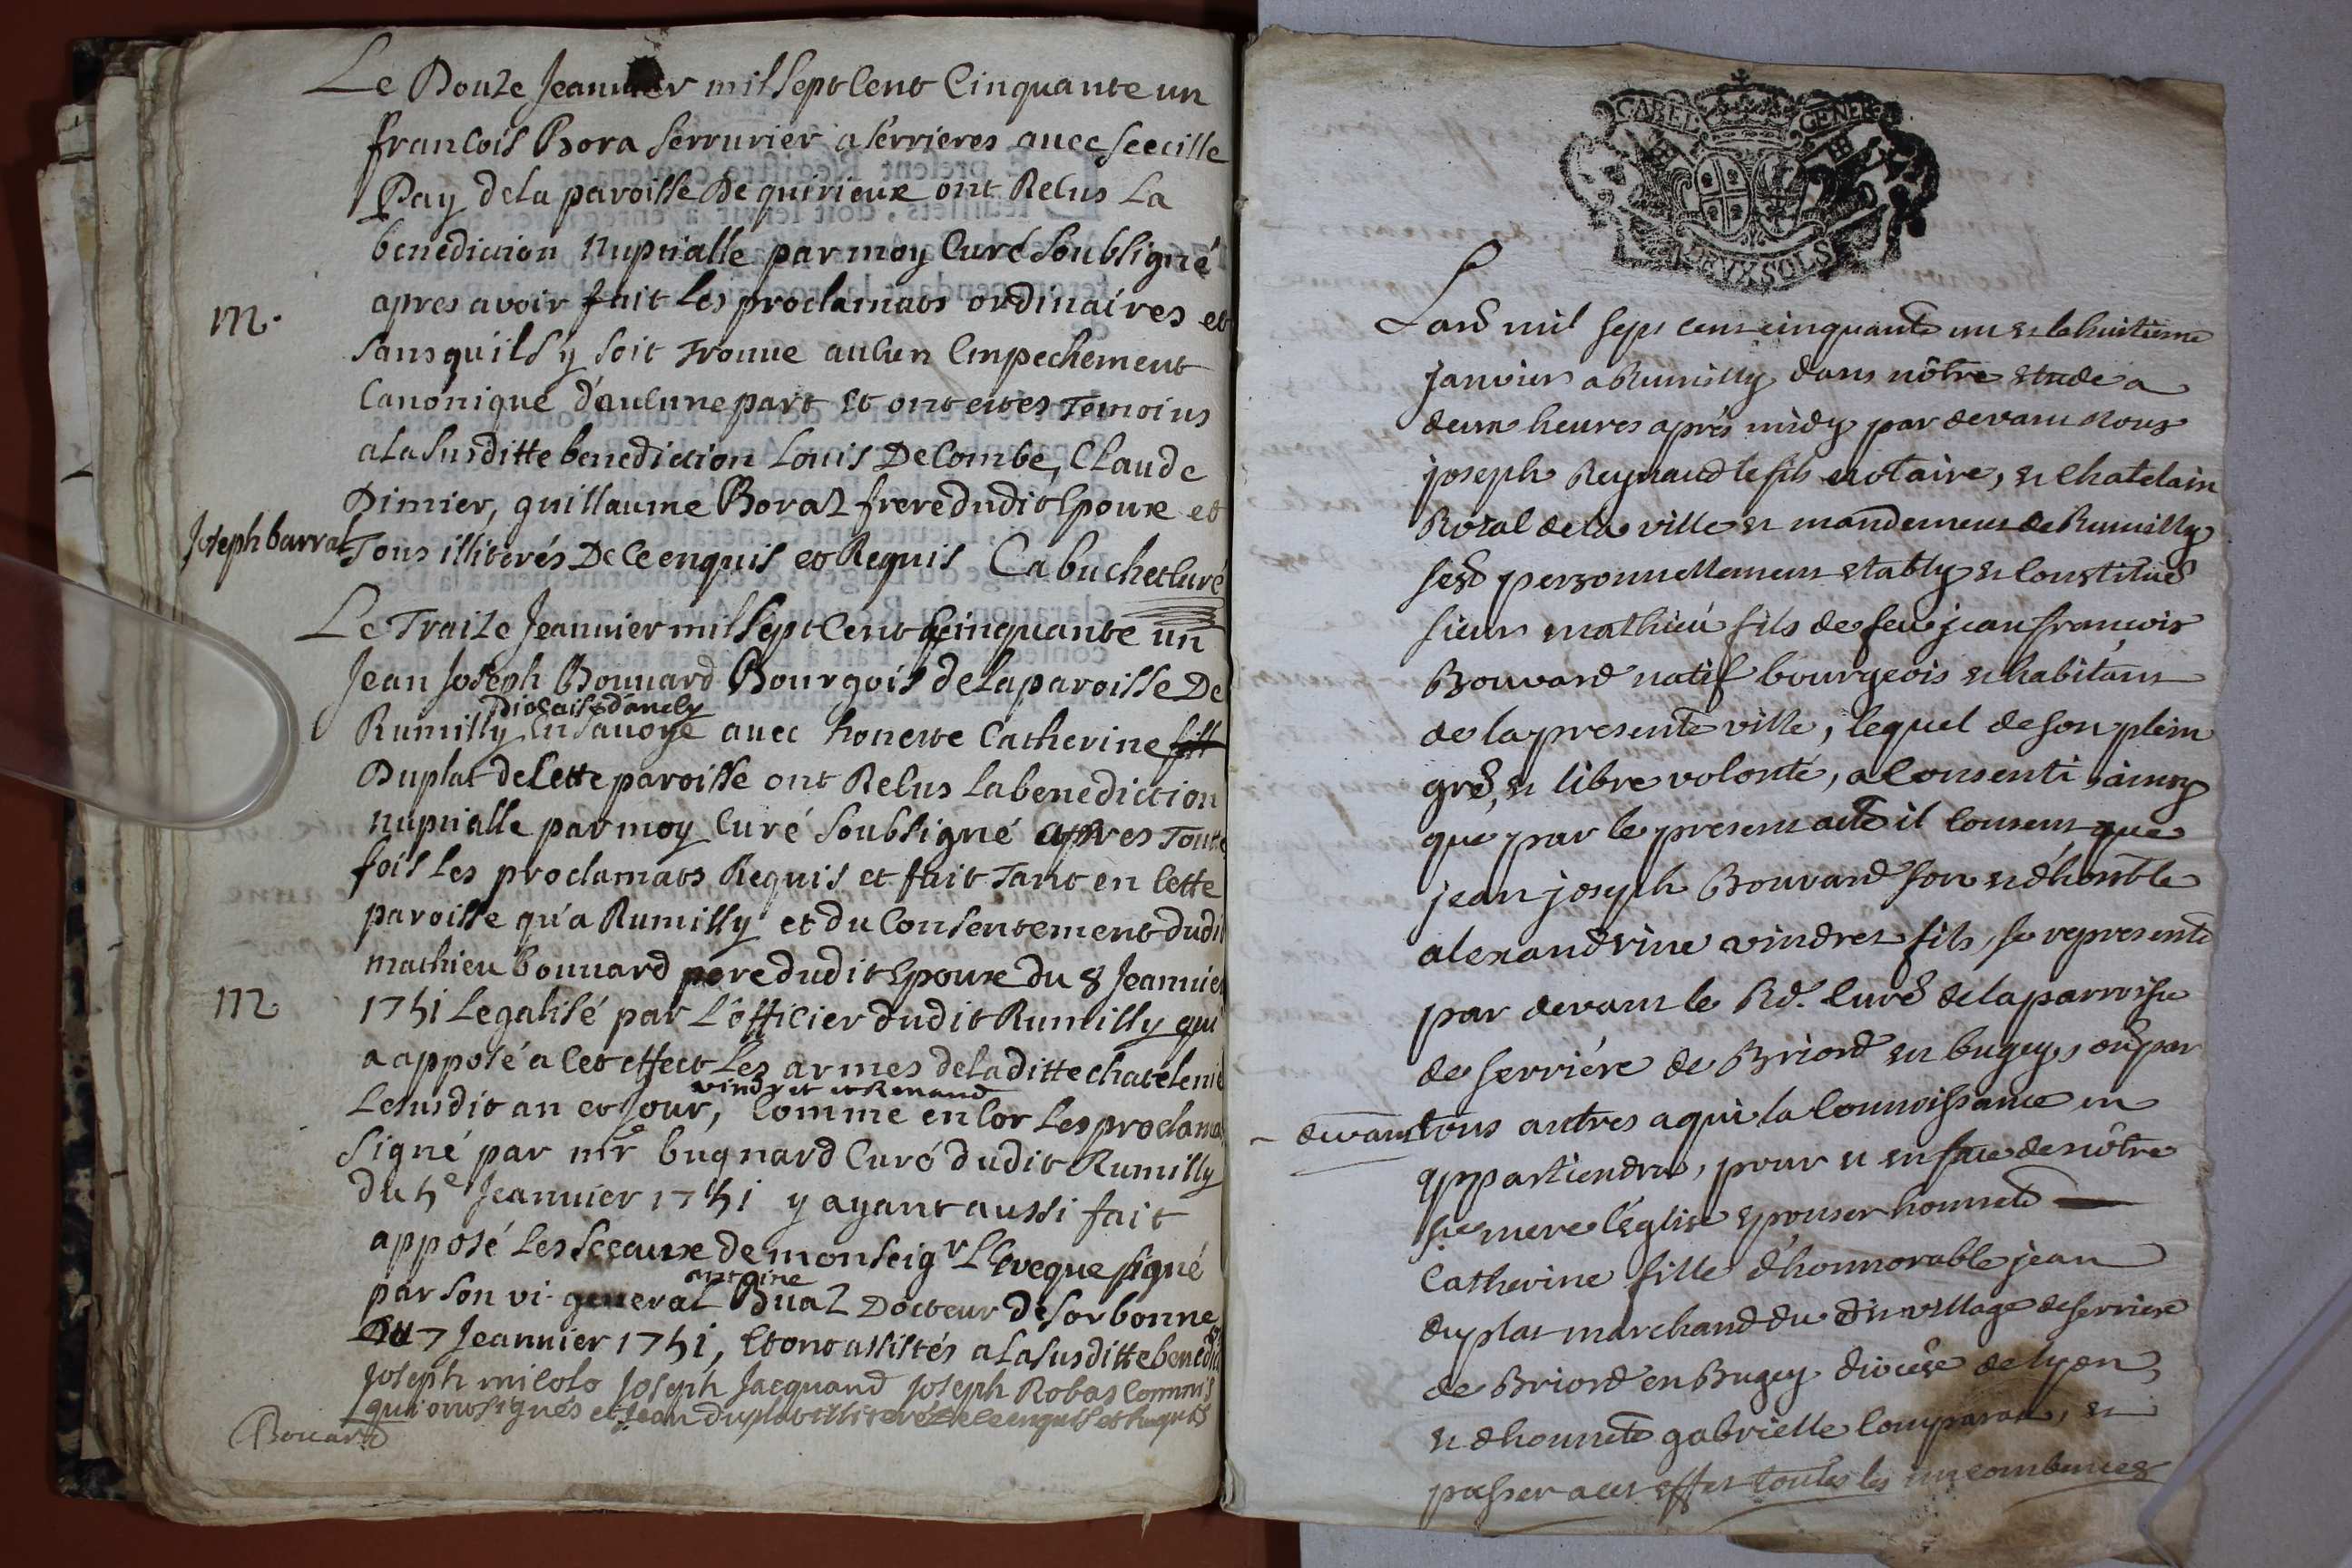 Le Douze Jeanvier mil sept cent Cinquante un
francois Bora serrurier a serrieres avec scecille
Pay de la paroisse De quirieux ont Recus La
benediction Nuptialle par moy Curé soubsigné
apres avoir fait Les proclamats ordinaires et
m.
sans quil s'y soit Trouve aucun Empechement
Canonique d'aucune part et ont etes Temoins
a La susditte benediction Louis De Combe, Claude
Dimier, guillaume Boraz frere dudit Epoux et
Joseph barrat
Tous illiterés De ce enquis et Requis Cabuchet curé
Le Traize Jeanvier mil sept cent cinquante un
Jean Joseph Bouvard Bourgois de La paroisse De
diocaise d'anecy
Rumilly en savoye avec honette Catherine fill
Duplat de Cette paroisse ont Recus La benediction
nuptialle par moy Curé soubsigné apres Toute
fois Les proclamats Requis et fait Tant en Cette
paroisse qu'a Rumilly et du Consentement dudit
mathieu bouvard pere dudit Epoux du 8 Jeanvier
m.
1751 Legalisé par L'officier dudit Rumilly qui
a apposé a cet effect Les armes de la ditte chatelenie
vindret et Renaud
Le susdit an et Jour, Comme encor Les proclamats
signé par mr bugnard Curé dudit Rumilly
du 5e Jeanvier 1751 y ayant aussi fait
apposé Les sceaux de monseigr L'Eveque signé
antoine
par son vi. general Duaz Docteur de sorbonne
Du 7 Jeanvier 1751, Et ont assistés a La susditte benedict
Joseph micolo Joseph Jacquand Joseph Robas Commis
qui ont signés et Jean duplat illiteré De ce enquis et Requis
Bouard
GABEL GENER
DEUX SOLS
L'an mil sept cent cinquante un et le huitieme
janvier a Rumilly dans nôtre etude a
deux heures aprés midy par devant Nous
joseph Reynaud le fils notaire, et Chatelain
Roial de la ville et mandement de Rumilly
s'est personnellement etably et Constitué
sieur mathieu fils de feu jean francois
Bouvard natif bourgeois et habitant
de la presente ville, lequel de son plein
gré, et libre volonté, a Consenti ainsy
que par le present acte il Consent que
jean joseph Bouvard son et d'honnble
alexandrine vindret fils, se represente
par devant le Rd. Curé de la parroisse
de serriére de Briord en bugey, ou par
devant tous autres a qui la Connoissance en
appartiendra, pour et en face de nôtre
ste mere l'église epouser honnete
Catherine fille d'honnorable jean
duplat marchand du dit village de serriere
de Briord en Bugey diocése de lyon,
et d'honnete gabrielle Comparat, et
passer a cet effet toutes les incombences